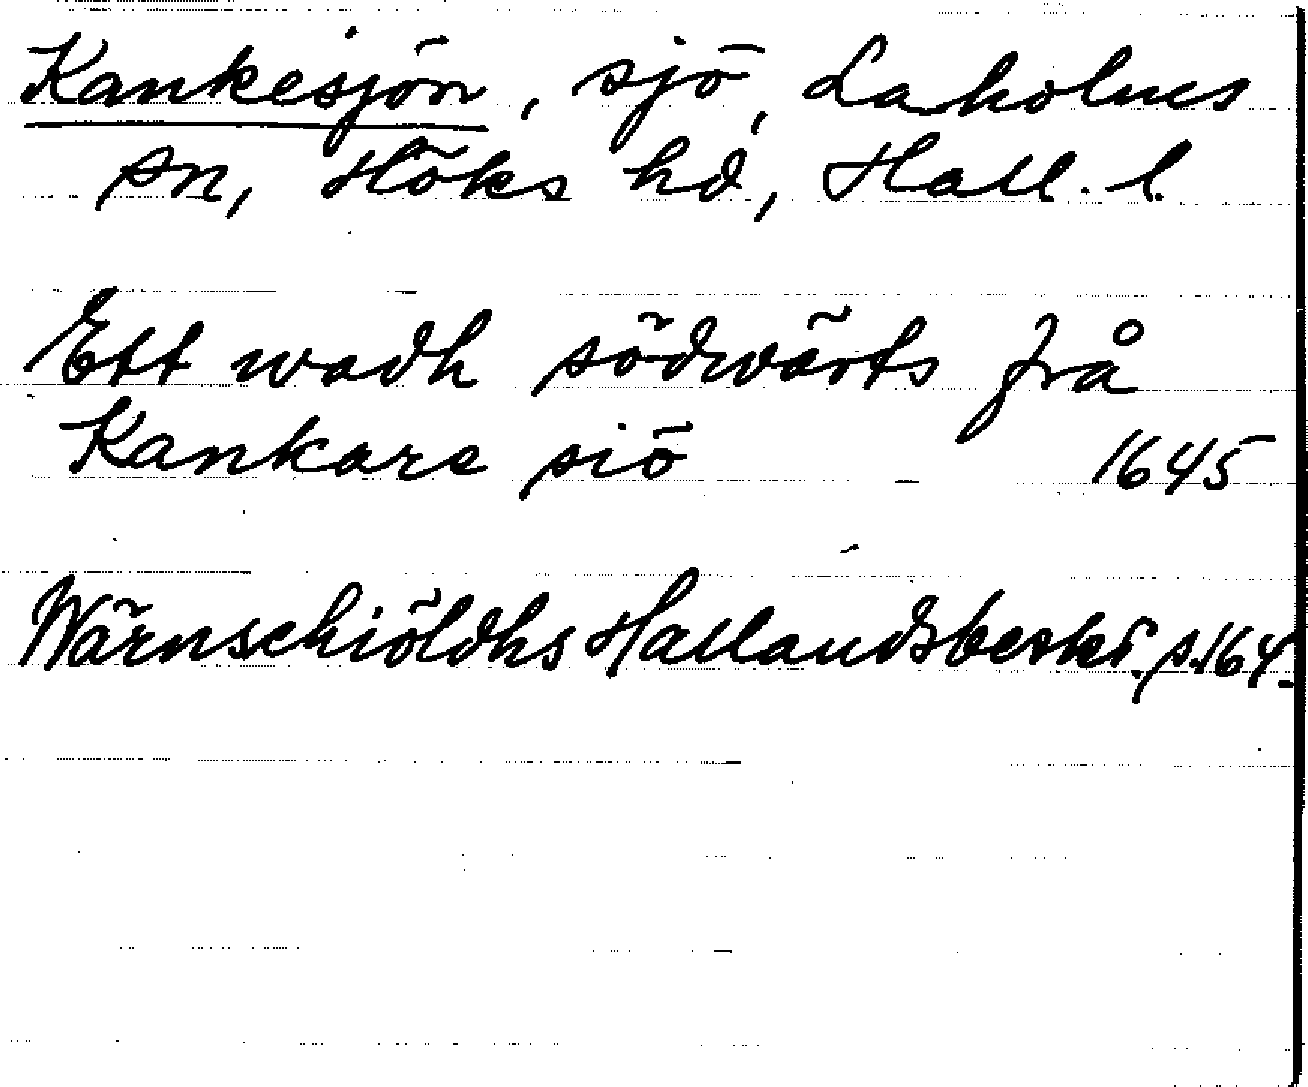 Kankesjön, sjö, Laholms
sn, Höks hd, Hall. l.
Ett wadh södwärts från
Kankare siö 1645
Wärnschiöldhs Hallandsbeskr. s. 164.